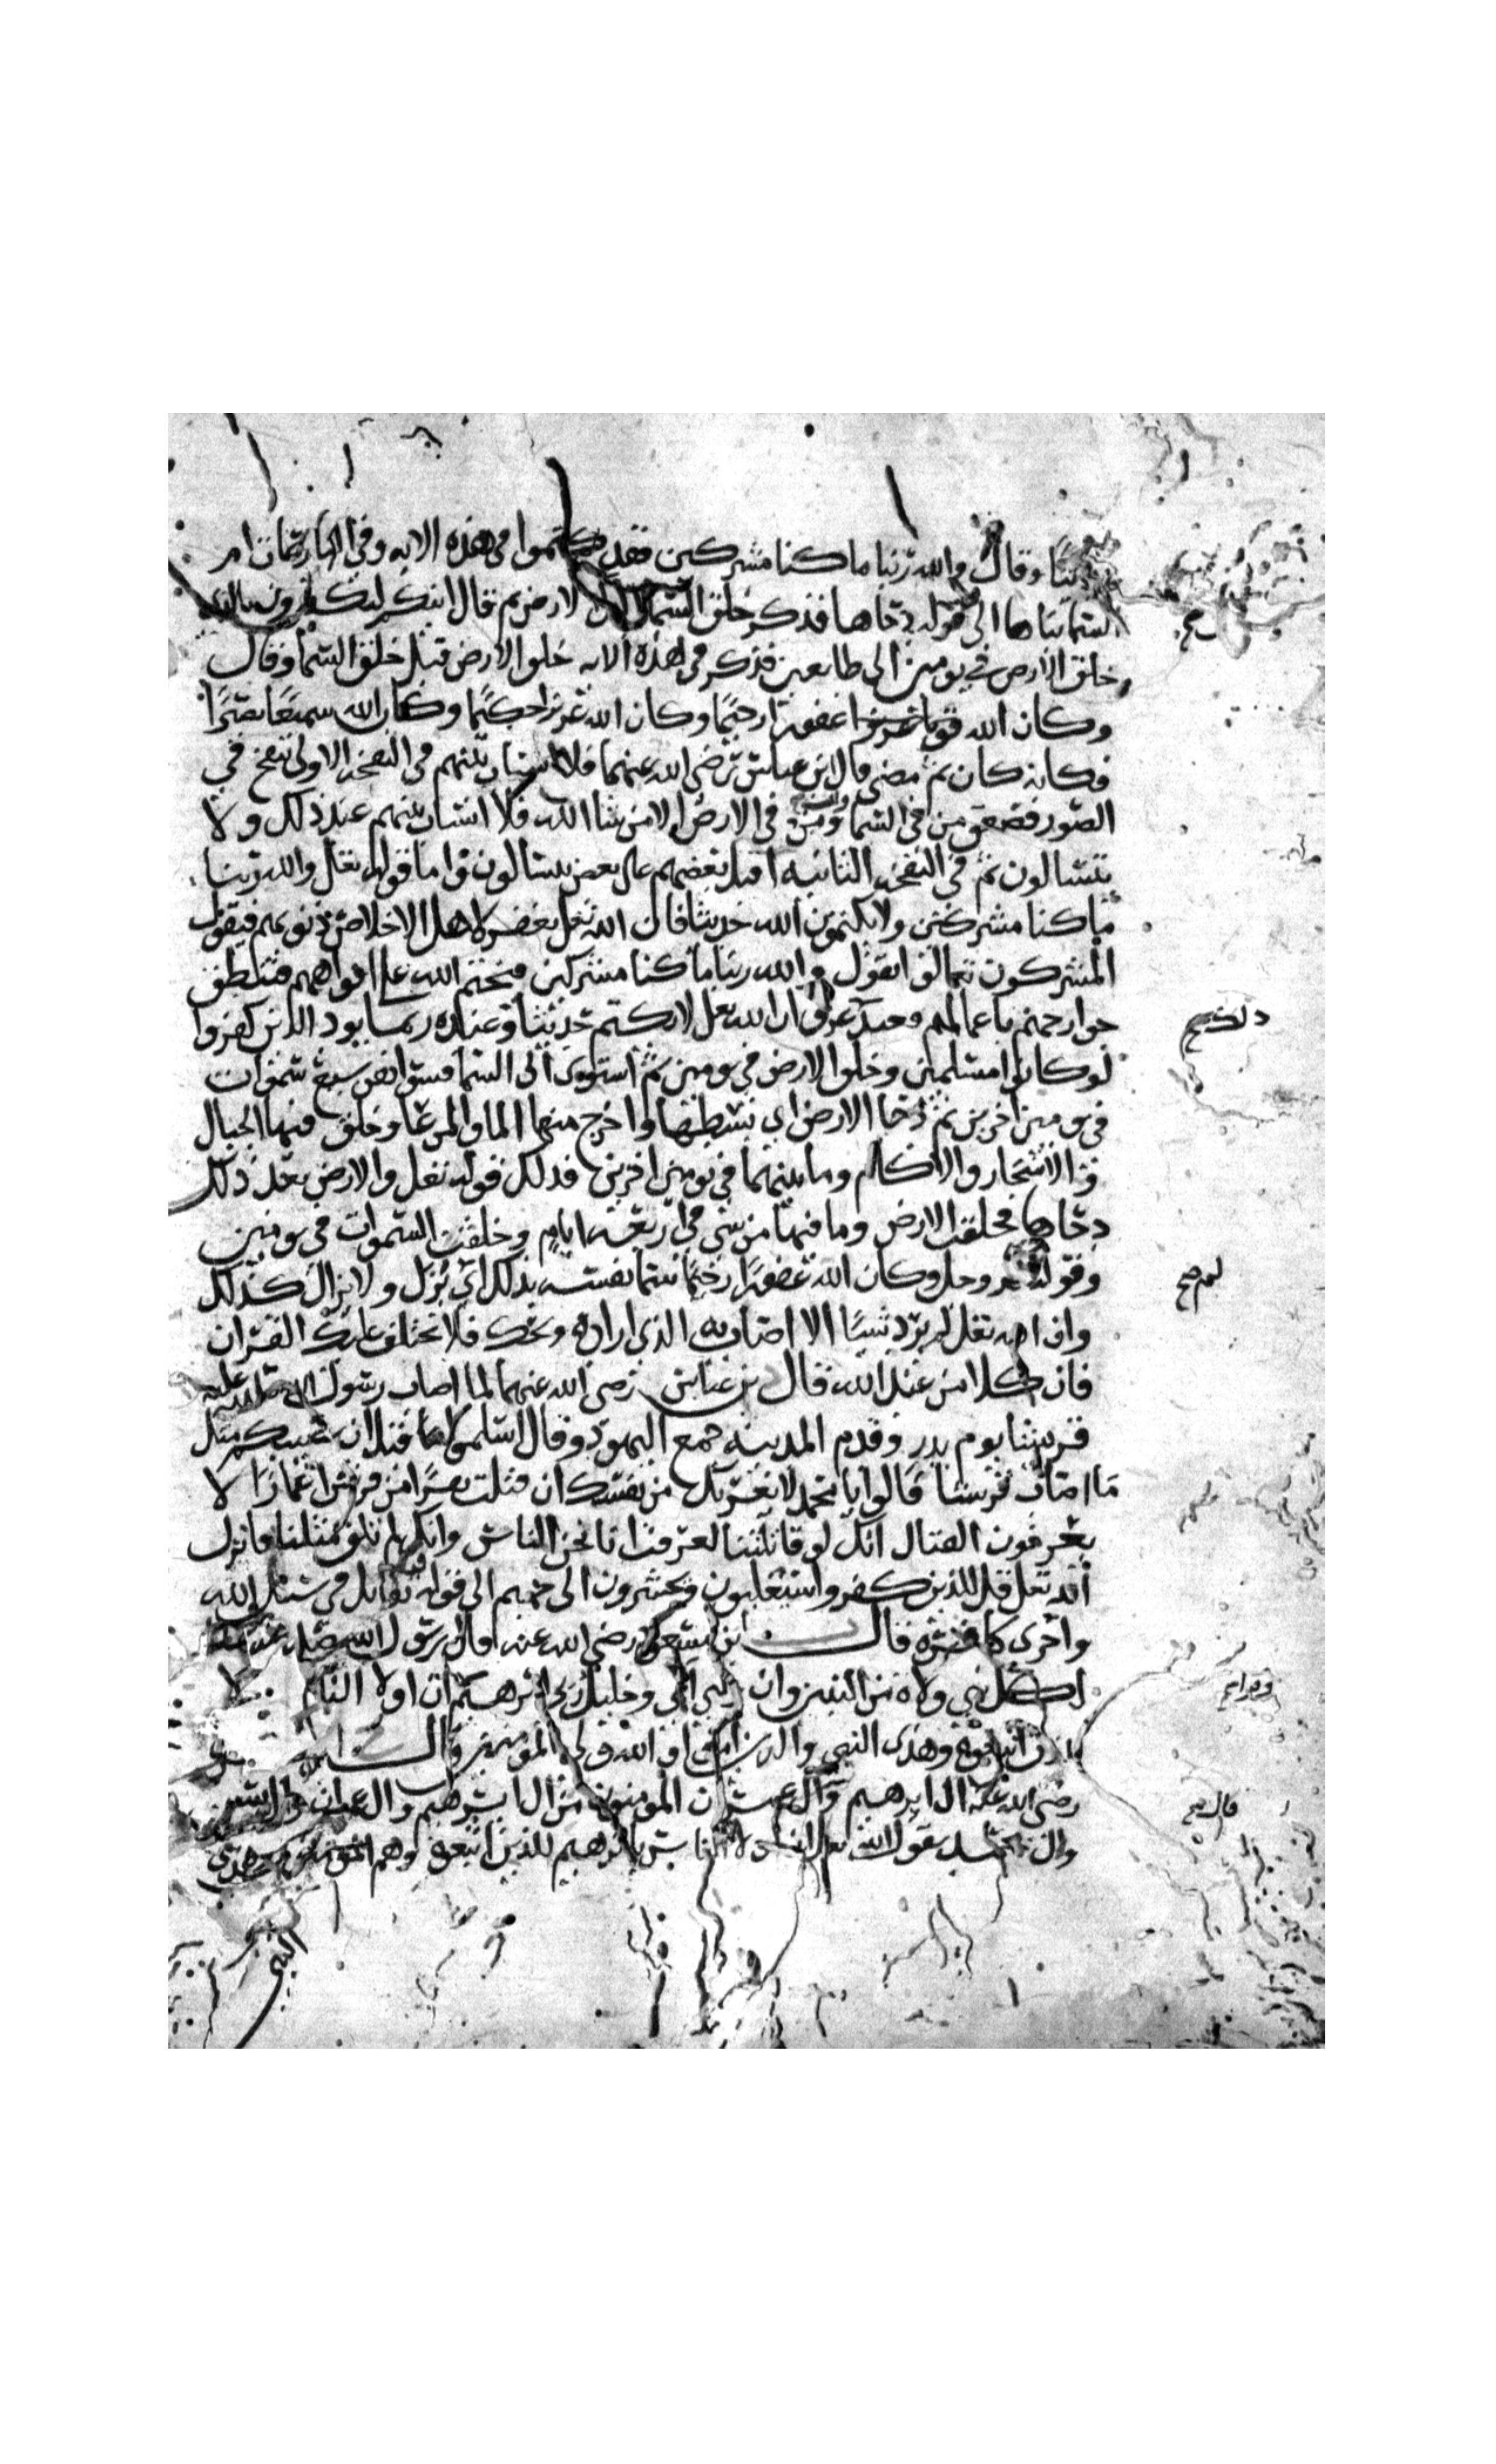 حديثا وقال والله ربنا ما كنا مشركين فقد كتموا في هذه الايه وفي النازعات ام
السما بناها الى قوله دحاها فذكر خلق السما قبل الارض ثم قال اينكم لتكفرون بالذي
خلق الارض في يومين الى طايعين فذكر في هذه الايه خلق الارض قبل خلق السما وقال
وكان الله غفورا رحيما وكان الله عزيزا حكيما وكان الله سميعا بصيرا
فكانه كان ثم مضى قال ابن عباس رضي الله عنهما فلا انساب بينهم في النفخه الاولى ينفخ في
الصور فصعق من في السما ومن في الارض الا من شا الله فلا انساب بينهم عند ذلك ولا
يتسالون ثم في النفخه الثانيه اقبل بعضهم على بعض يتسالون واما قوله تعلى والله ربنا
ما كنا مشركين ولا يكتمون الله حديثا فان الله تعلى يغفر لاهل الاخلاص ذنوبهم فيقول
المشركون تعالوا نقول والله ربنا ما كنا مشركين فيختم الله على افواههم فتنطق
جوارحهم باعمالهم فعند عرف ان الله تعلى لا يكتم حديثا وعنده ربما يود الذين كفروا
لو كانوا مسلمين وخلق الارض في يومين ثم استوى الى السما فسواهن سبع سموات
في يومين اخرين ثم دحا الارض اي بسطها واخرج منها الما والمرعا وخلق فيها الجبال
والاشجار والاكام وما بينهما في يومين اخرين فذلك قوله تعلى والارض بعد ذلك
دحاها فخلقت الارض وما فيها من شي في اربعه ايام وخلقت السموات في يومين
وقوله عز وجل وكان الله غفورا رحيما سما نفسه بذلك اي نزل ولا يزال كذلك
وان الله تعلى لم يرد شيا الا اصاب به الذي اراده ويحك فلا يختلف عليك القران
فان كلا من عند الله قال بن عباس رضي الله عنهما لما اصاب رسول الله صلى الله عليه
قريشا يوم بدر وقدم المدينه جمع اليهود وقال اسلموا قبل ان يصيبكم مثل
ما اصاب قريشا قالوا يا محمد لا يغرنك من نفسك ان قتلت نفرا من قريش اغمارا لا
يعرفون القتال انك لو قاتلتنا لعرفت انا نحن الناس وانك لم تلق مثلنا فانزل
الله تعلى قل للذين كفروا ستغلبون وتحشرون الى جهنم الى قوله فيه تقاتل في سبيل الله
واخرى كافره قال ابن مسعود رضي الله عنه قال رسول الله صلى الله عليه
لكل نبي ولاه من النبيين وان وليي ابي وخليل ربي ابرهيم ان اولا الناس
للذين اتبعوه وهذى النبي والذين امنوا والله ولي المومنين وقال
رضي الله عنه ال ابرهيم وال عمران المومنون من ال ابرهيم وال عمران
وال محمد يقول الله تعلى ان اولا الناس بابرهيم للذين اتبعوه وهم المومنون
ذلك صح
لهم صح
قال صح
النبي